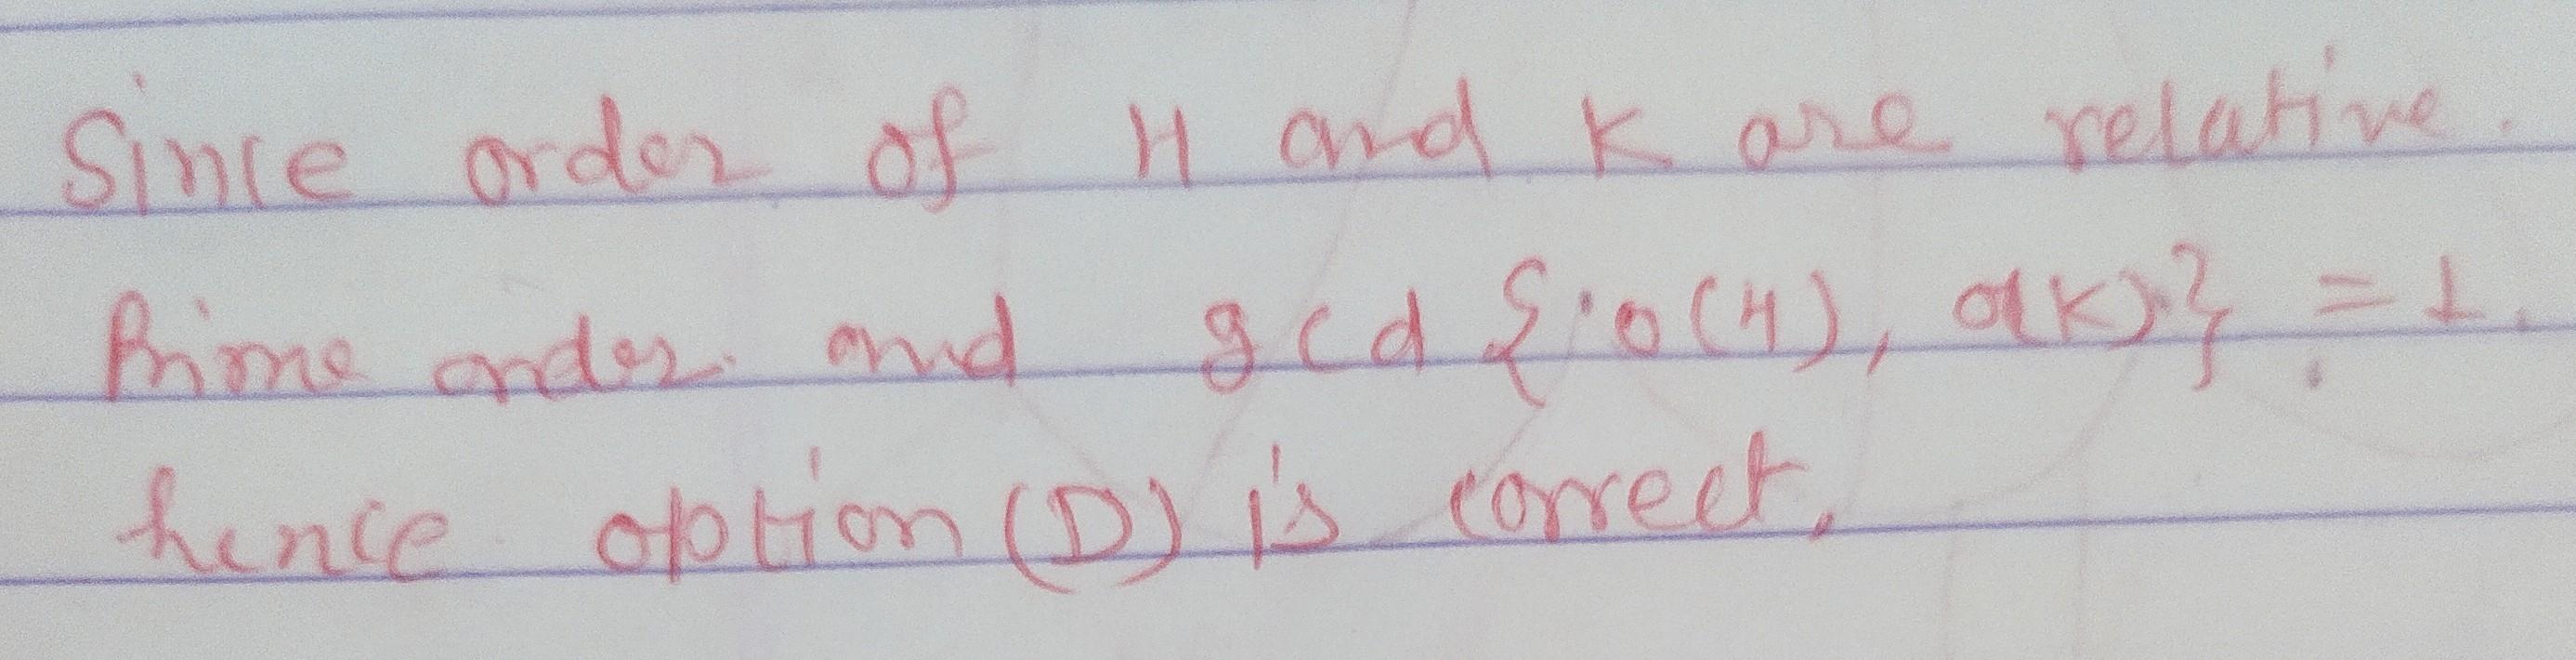 Since order of H and K are relative.
Prime order and gcd {o(H), o(K)} = 1.
hence option (D) is correct.